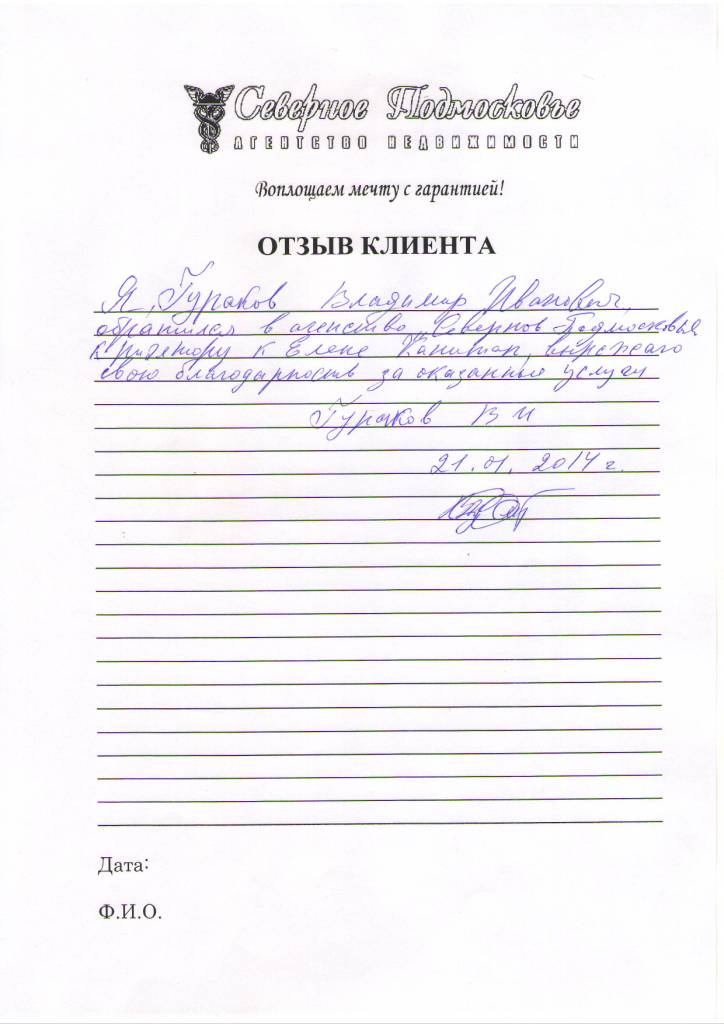 Северное Подмосковье
АГЕНТСТВО НЕДВИЖИМОСТИ
Воплощаем мечту с гарантией!
ОТЗЫВ КЛИЕНТА
Я, Гураков Владимир Иванович,
обратился в агенство "Северное Подмосковья
к риэлтору к Елене Капитан, выражаю
свою благодарность за оказанные услуги
Гураков В И
21.01.2014 г.
Дата:
Ф.И.О.